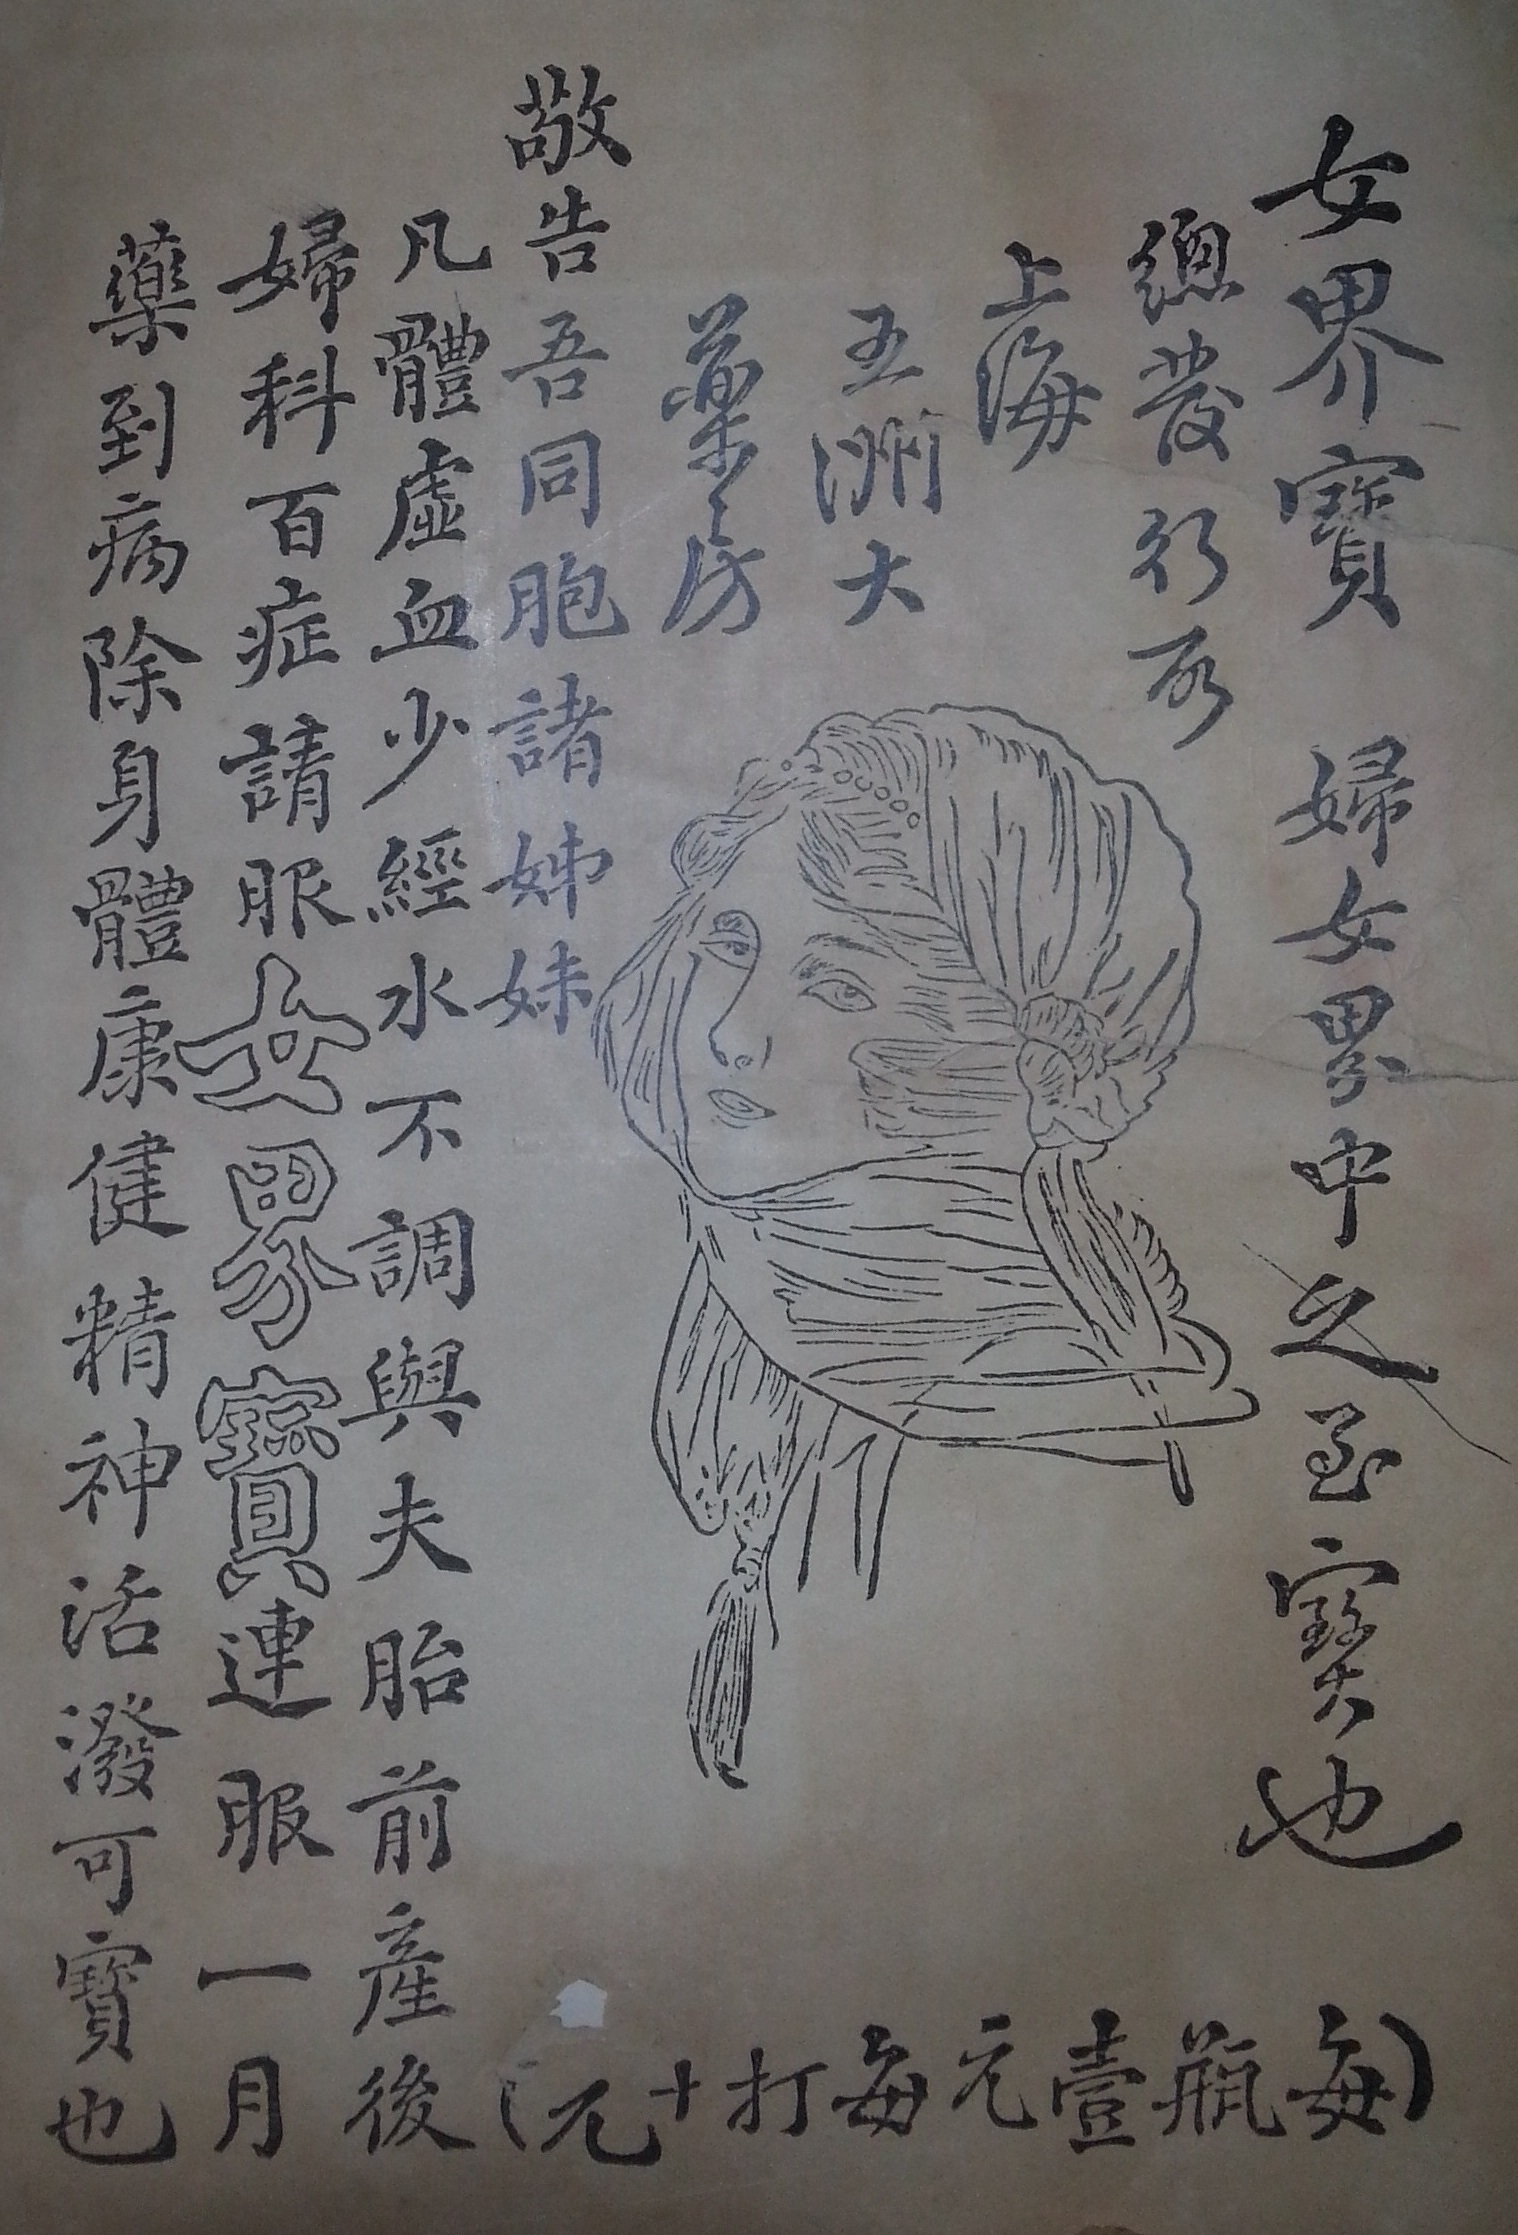 女界寶 婦女界中之至寶也
總發行所
上海
五洲大
藥房
敬告吾同胞諸姊妹
凡體虛血少經水不調與夫胎前產後
婦科百症請服女界寶連服一月
藥到病除身體康健精神活潑可寶也
(每瓶壹元每打十元)